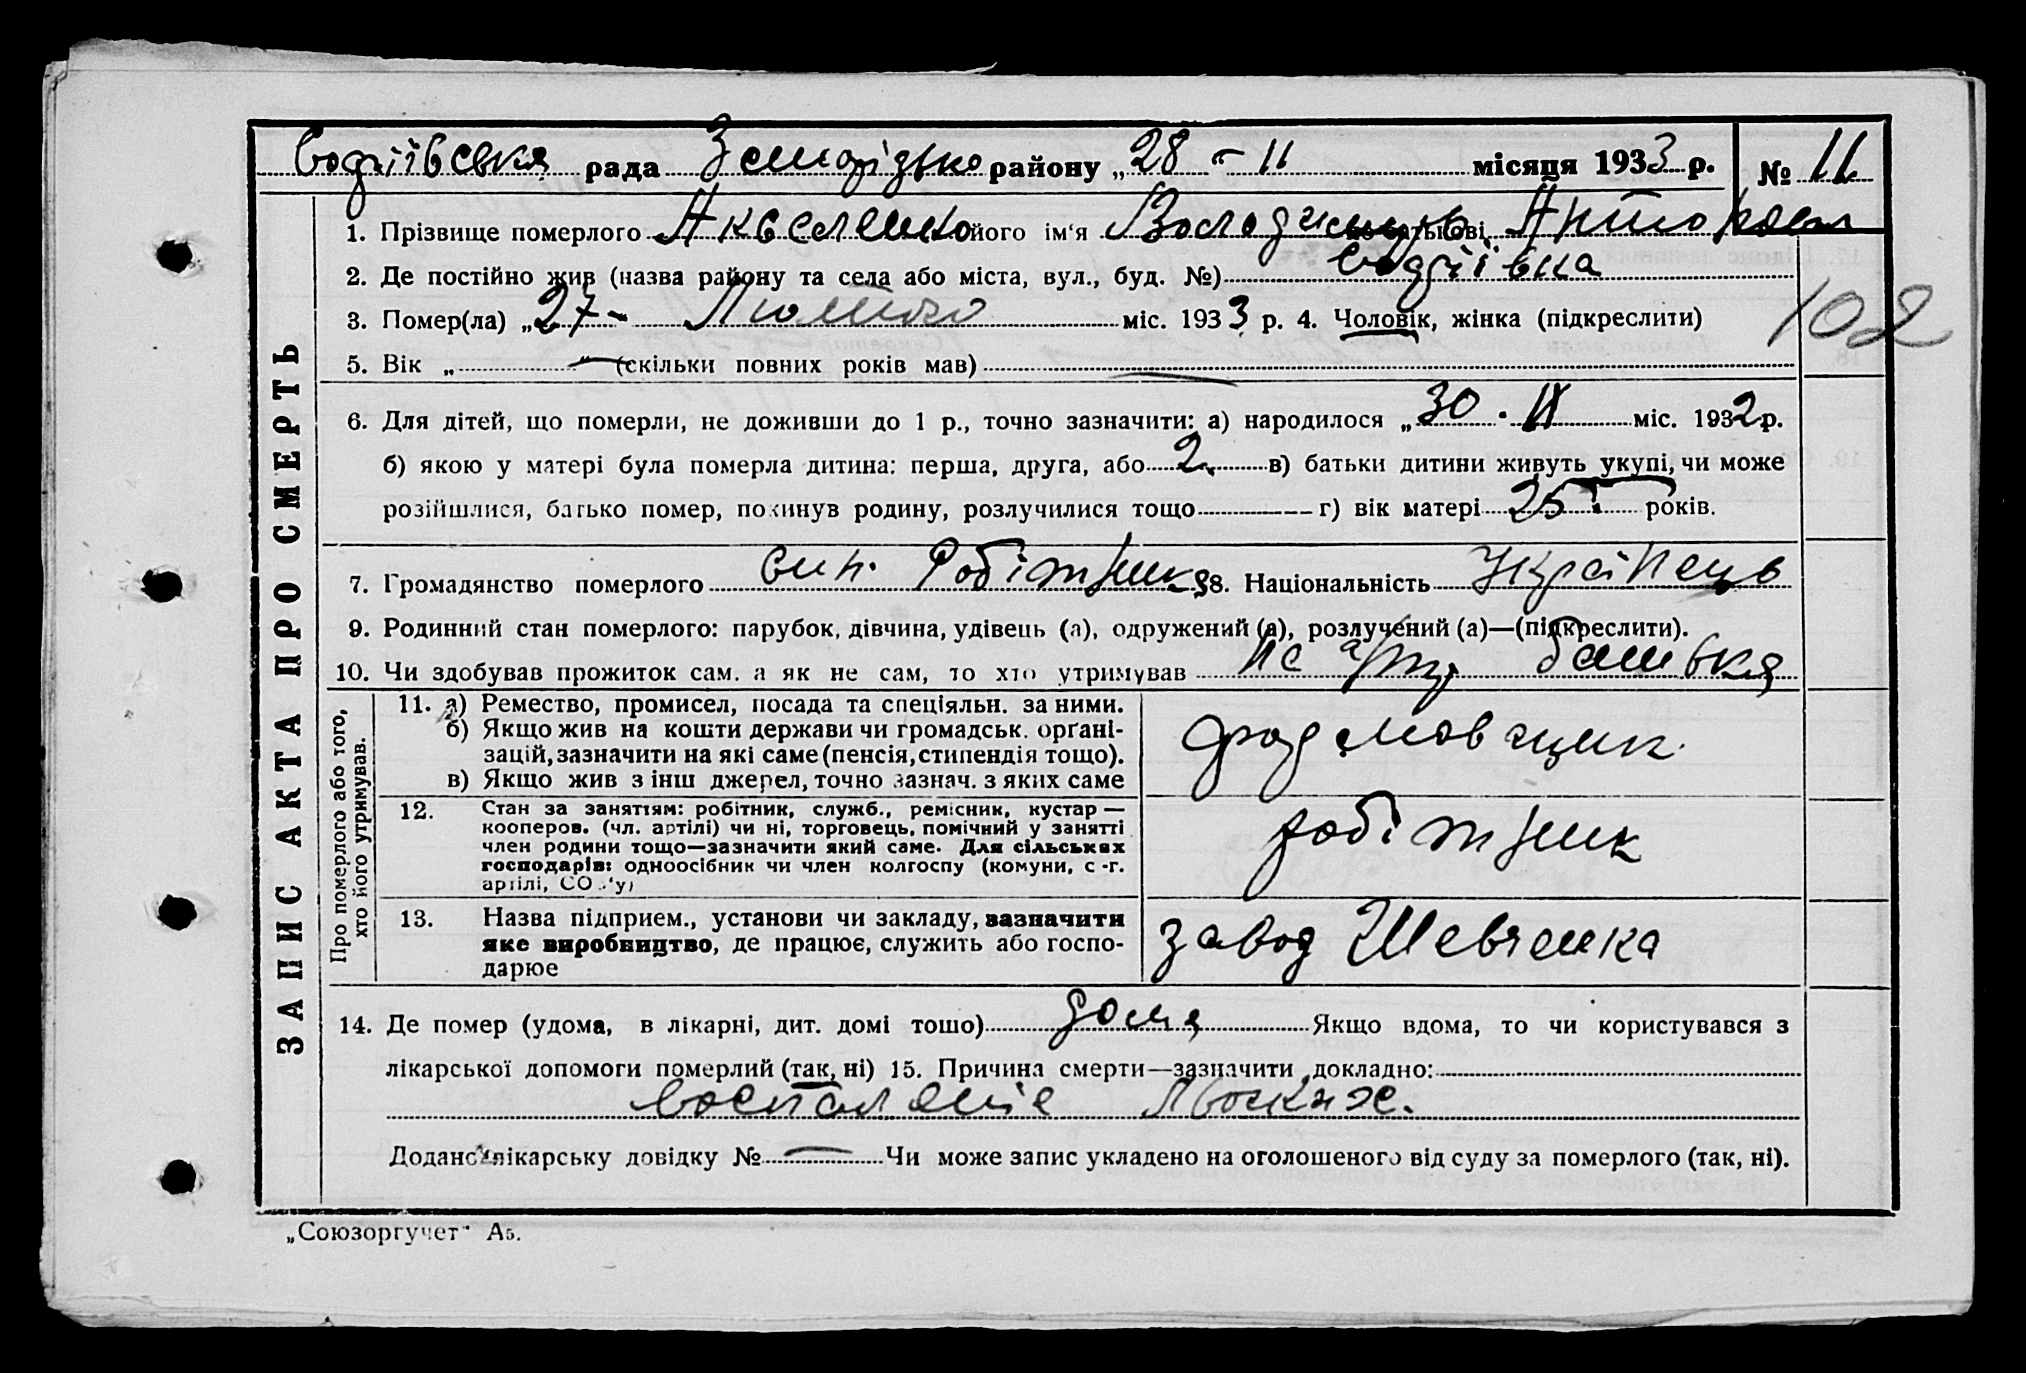 Софіївська рада Запорізько району „28 “ – 11 місяця 1933 р. № 11
1. Прізвище померлого Аксаленко його ім‘я Володимир по батькові Антонов
2. Де постійно жив (назва району та села або міста, вул., буд. №) Софіївка
3. Помер(ла) „27 – Лютого міс. 1933 р. 4. Чоловік, жінка (підкреслити)
102
5. Вік „ “ — (скільки повних років мав) —
6. Для дітей, що померли, не доживши до 1 р., точно зазначити: а) народилося „30 . міс. 1932 р.
б) якою у матері була померла дитина: перша, друга, або 2 в) батьки дитини живуть укупі, чи може
розійшлися, батько помер, покинув родину, розлучилися тощо г) вік матері 25 років.
7. Громадянство померлого син робітника 8. Національність Українець
9. Родинний стан померлого: парубок, дівчина, удівець (а), одружений (а), розлучений (а)—(підкреслити).
10. Чи здобував прожиток сам, а як не сам, то хто утримував на утр батька
ЗАПИС АКТА ПРО СМЕРТЬ
Про померлого або того, хто його утримував.
11. а) Ремество, промисел, посада та спеціяльн. за ними.
б) Якщо жив на кошти держави чи громадськ. орґані-
зацій, зазначити на які саме (пенсія, стипендія тощо).
в) Якщо жив з інш джерел, точно зазнач. з яких саме
формовщик
12. Стан за заняттям: робітник, служб., ремісник, кустар —
кооперов. (чл. артілі) чи ні, торговець, помічний у занятті
член родини тощо—зазначити який саме. Для сільських
господарів: одноосібник чи член колгоспу (комуни, с.-г.
артілі, СО у)
робітник
13. Назва підприєм., установи чи закладу, зазначити
яке виробництво, де працює, служить або госпо-
дарює
завод Шевченка
14. Де помер (удома, в лікарні, дит. домі тошо) дома Якщо вдома, то чи користувався з
лікарської допомоги померлий (так, ні) 15. Причина смерти—зазначити докладно:
воспаленіе
Додано лікарську довідку № — Чи може запис укладено на оголошеного від суду за померлого (так, ні).
„Союзоргучет“ А5.